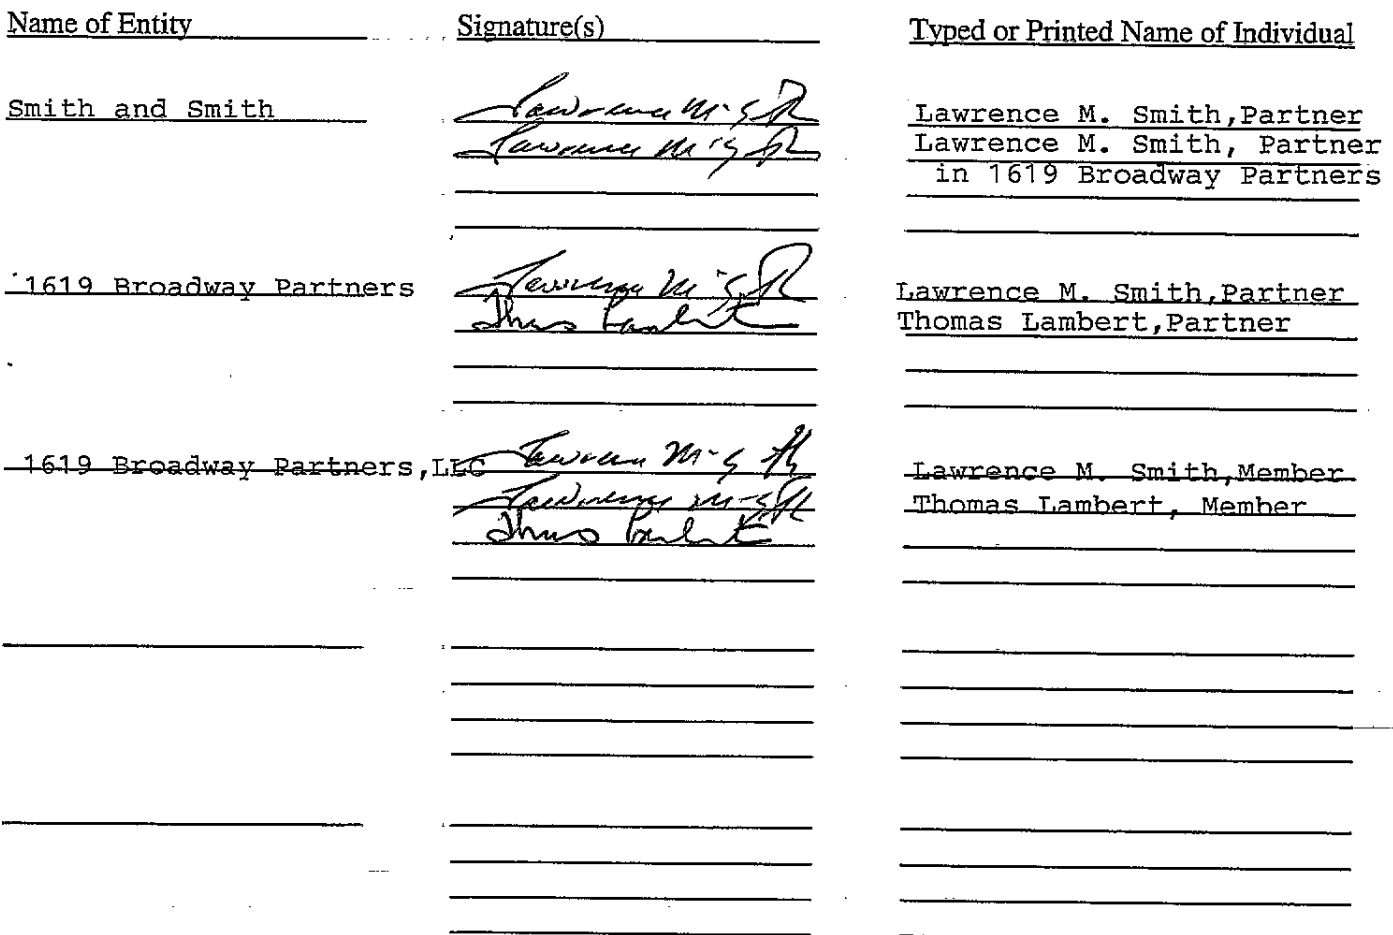 Name of Entity Signature(s) Typed or Printed Name of Individual
Smith and Smith Lawrence M. Smith Lawrence M. Smith,Partner
Lawrence M. Smith Lawrence M. Smith, Partner
in 1619 Broadway Partners
1619 Broadway Partners Lawrence M. Smith Lawrence M. Smith,Partner
Thomas Lambert Thomas Lambert,Partner
1619 Broadway Partners,LLC Lawrence M. Smith Lawrence M. Smith,Member
Lawrence M. Smith Thomas Lambert, Member
Thomas Lambert